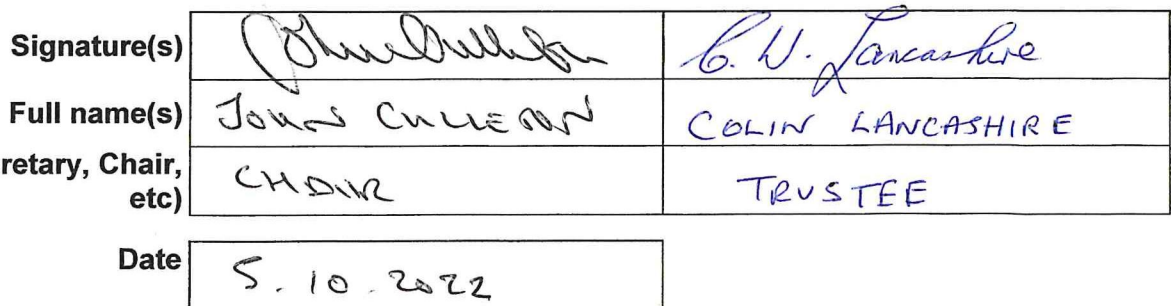 Signature(s) C. W. Lancashire
Full name(s) JOHN CULLERON COLIN LANCASHIRE
retary, Chair, CHAIR TRUSTEE
etc)
Date 5.10.2022